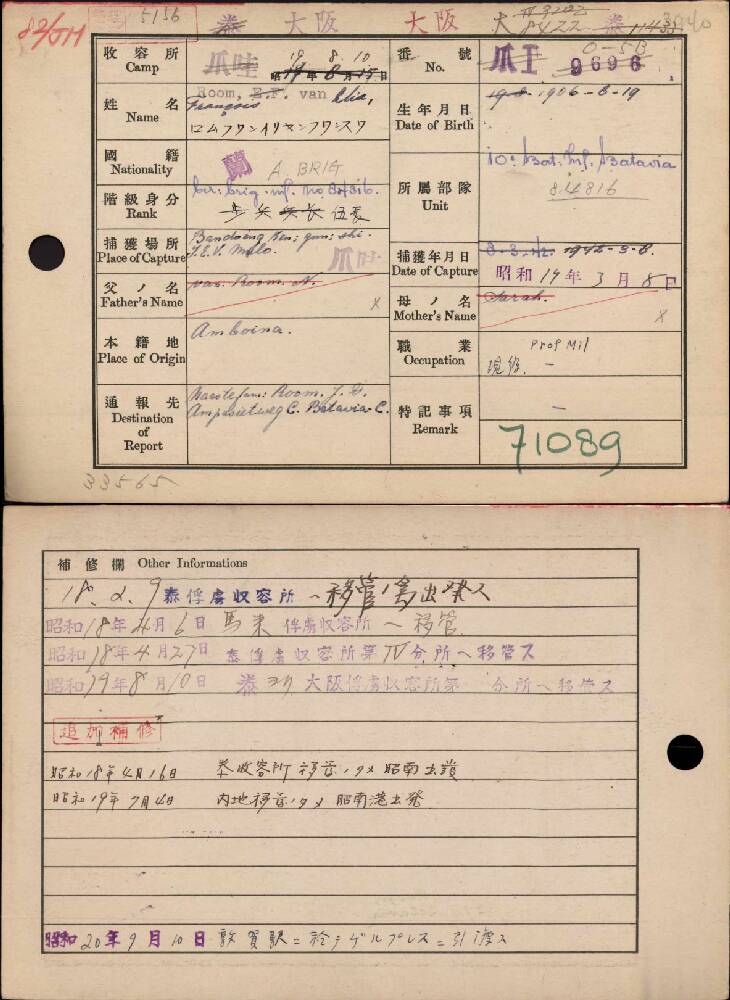 82/JH 5156 泰 大阪 大阪 大 8422 泰 11433
収容所 Camp 爪哇 19 8 10 昭 17年8月15日
番號 No. 爪I 9696
姓名 Name Room, E.F. van Elia, François
ロームフワンイリヤンフワンスワ
生年月日 Date of Birth 1906-8-19
國籍 Nationality 蘭 A. BRIG
階級身分 Rank ber: brig. inf. No 84816.
伍長
所属部隊 Unit 10e Bat. Inf. Batavia
84816
捕獲場所 Place of Capture Bandoeng
爪哇
捕獲年月日 Date of Capture 8-3-42. 1942-3-8.
昭和17年3月8日
父ノ名 Father's Name van Room. N. x
母ノ名 Mother's Name Sarah. x
本籍地 Place of Origin Amboina.
職業 Occupation Prof Mil
現役. -
通報先 Destination of Report Room. J. H.
C. Batavia-C.
特記事項 Remark -
71089
33565
補修欄 Other Informations
18. 2. 9 泰俘虜収容所ヘ移管ノ為出発ス
昭和18年4月6日 馬来俘虜収容所ヘ移管
昭和18年4月27日 泰俘虜収容所第IV分所ヘ移管ス
昭和19年8月10日 泰ヨリ大阪俘虜収容所第 分所ヘ移管ス
追加補修
昭和18年4月16日 泰収容所移管ノタメ昭南出発
昭和19年7月4日 内地移管ノタメ昭南港出発
昭和20年9月10日 敦賀駅ニ於テ ニ引渡ス